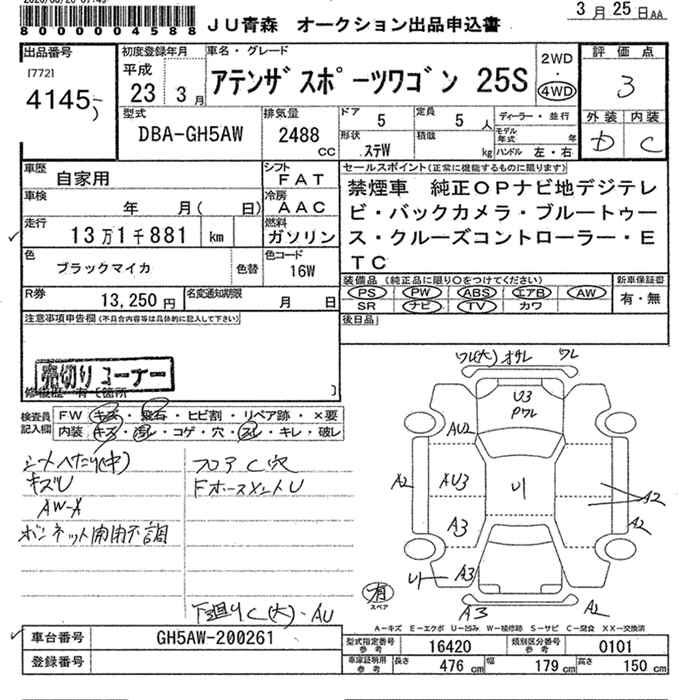 8000004588
JU青森 オークション出品申込書
3月25日AA
出品番号
[772]
4145
初度登録年月
平成
23 3月
車名・グレード
アテンザスポーツワゴン 25S
2WD
・
4WD
評価点
3
外装 内装
D C
型式
DBA-GH5AW
排気量
2488 cc
ドア
5
定員
5 人
形状
ステW
積載
kg
ディーラー・並行
モデル年式 年
ハンドル 左・右
車歴
自家用
シフト
FAT
車検
年 月( 日)
冷房
AAC
走行
13万1千881 km
燃料
ガソリン
色
ブラックマイカ
色替
色コード
16W
R券
13,250円
名変通知期限
月 日
セールスポイント(正常に機能するものに限ります)
禁煙車 純正OPナビ地デジテレ
ビ・バックカメラ・ブルートゥー
ス・クルーズコントローラー・E
TC
装備品(純正品に限り○をつけてください)
PS PW ABS エアB AW
SR ナビ TV カワ
新車保証書
有・無
後日品
注意事項申告欄(不具合内容等は具体的に記入して下さい)
売切りコーナー
検査員記入欄
FW キズ・飛石・ヒビ割・リペア跡・×要
内装 キズ・汚レ・コゲ・穴・スレ・キレ・破レ
シートヘたり(中)
キズU
AW-A
ボンネット開閉不調
フロアC穴
FホースメントU
下廻りC(大)・AU
ワレ(大) オサレ ワレ
U3
Pワレ
AU2
A2
AU3
U1
A2
A3
A2
U1
A3
有
スペア
A3
A2
A-キズ E-エクボ U-凹み W-補修跡 S-サビ C-腐食 XX-交換済
車台番号
GH5AW-200261
登録番号
型式指定番号
参考
16420
類別区分番号
参考
0101
車庫証明用
参考
長さ 476 cm 幅 179 cm 高さ 150 cm